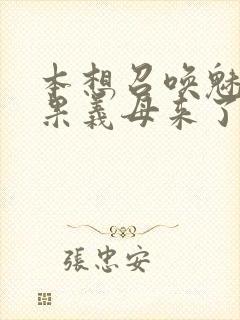 本想召唤魅
果義母来了
張忠安